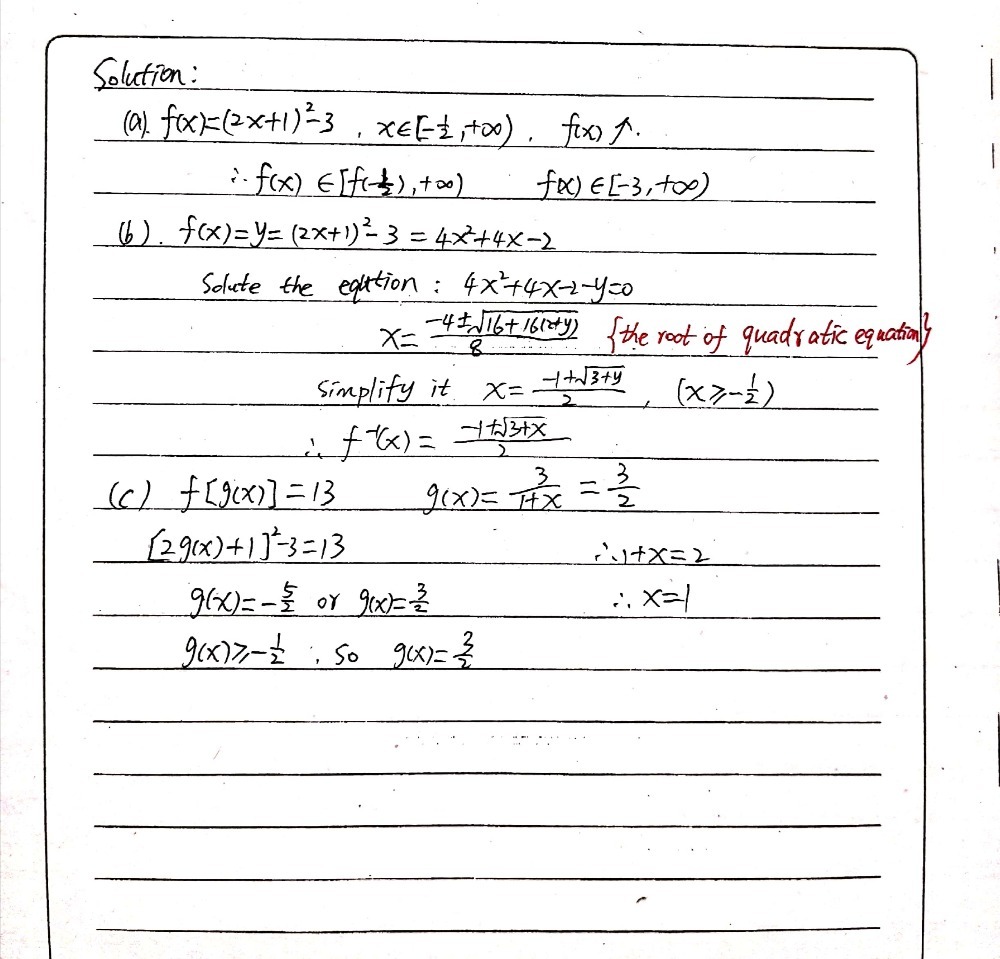 Solution:
(a). f(x)=(2x+1)²-3 , x∈[-½,+∞) . f(x)↑.
∴ f(x)∈[f(-½),+∞) f(x)∈[-3,+∞)
(b). f(x)=y=(2x+1)²-3=4x²+4x-2
Solute the eqution : 4x²+4x-2-y=0
x=(-4±√(16+16(2+y)))/8 {the root of quadratic equation}
Simplify it x=(-1+√(3+y))/2 , (x≥-½)
∴ f⁻¹(x)=(-1+√(3+x))/2
(c) f[g(x)]=13 g(x)=3/(1+x)=3/2
[2g(x)+1]²-3=13 ∴1+x=2
g(x)=-5/2 or g(x)=3/2 ∴ x=1
g(x)≥-½ , So g(x)=3/2